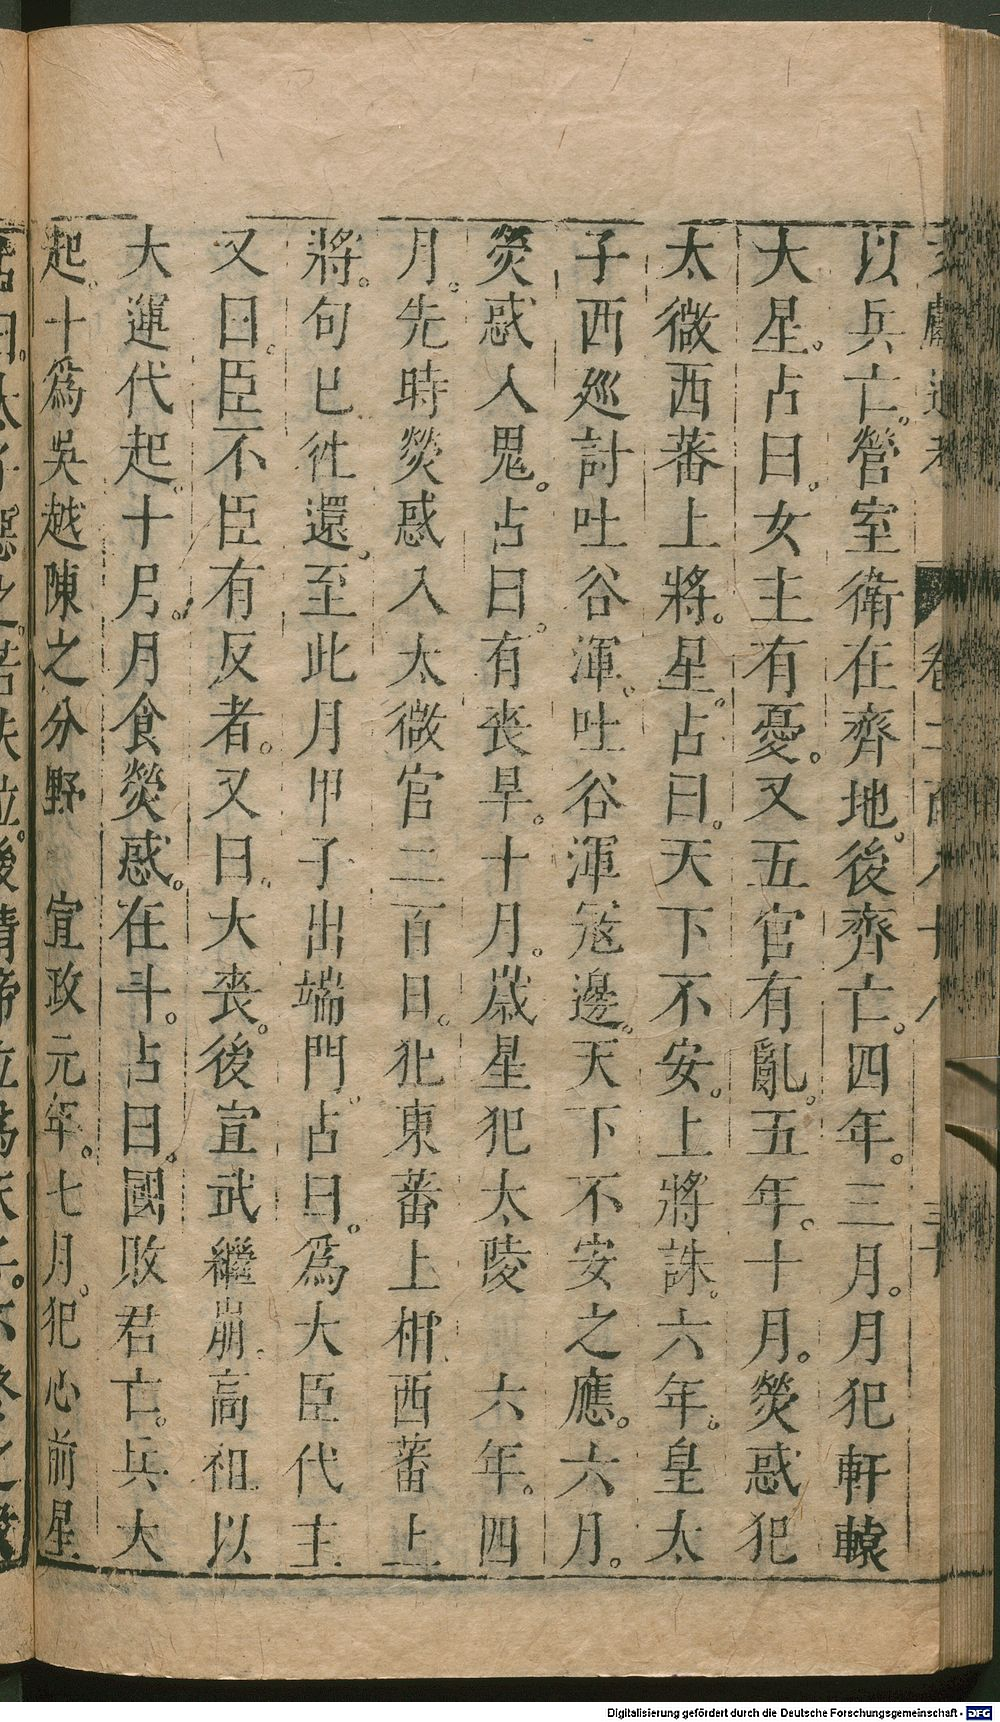 以兵亡。營室衛在齊地。後齊亡。四年。三月。月犯軒轅
大星。占曰。女主有憂。又五官有亂。五年。十月。熒惑犯
太微西蕃上將。星。占曰。天下不安。上將誅。六年。皇太
子西廵討吐谷渾。吐谷渾寇邊。天下不安之應。六月。
熒惑入鬼。占曰。有喪旱。十月。歲星犯太陵 六年。四
月。先時熒惑入太微宮二百日。犯東蕃上相西蕃上
將。句巳徃還。至此月甲子出端門。占曰。爲大臣代主
又曰。臣不臣有反者。又曰。大喪。後宣武繼崩。高祖以
大運代起。十月。月食熒惑。在斗。占曰。國敗君亡。兵大
起。十爲吳越陳之分野 宣政元年。七月。犯心前星
Digitalisierung gefördert durch die Deutsche Forschungsgemeinschaft - DFG